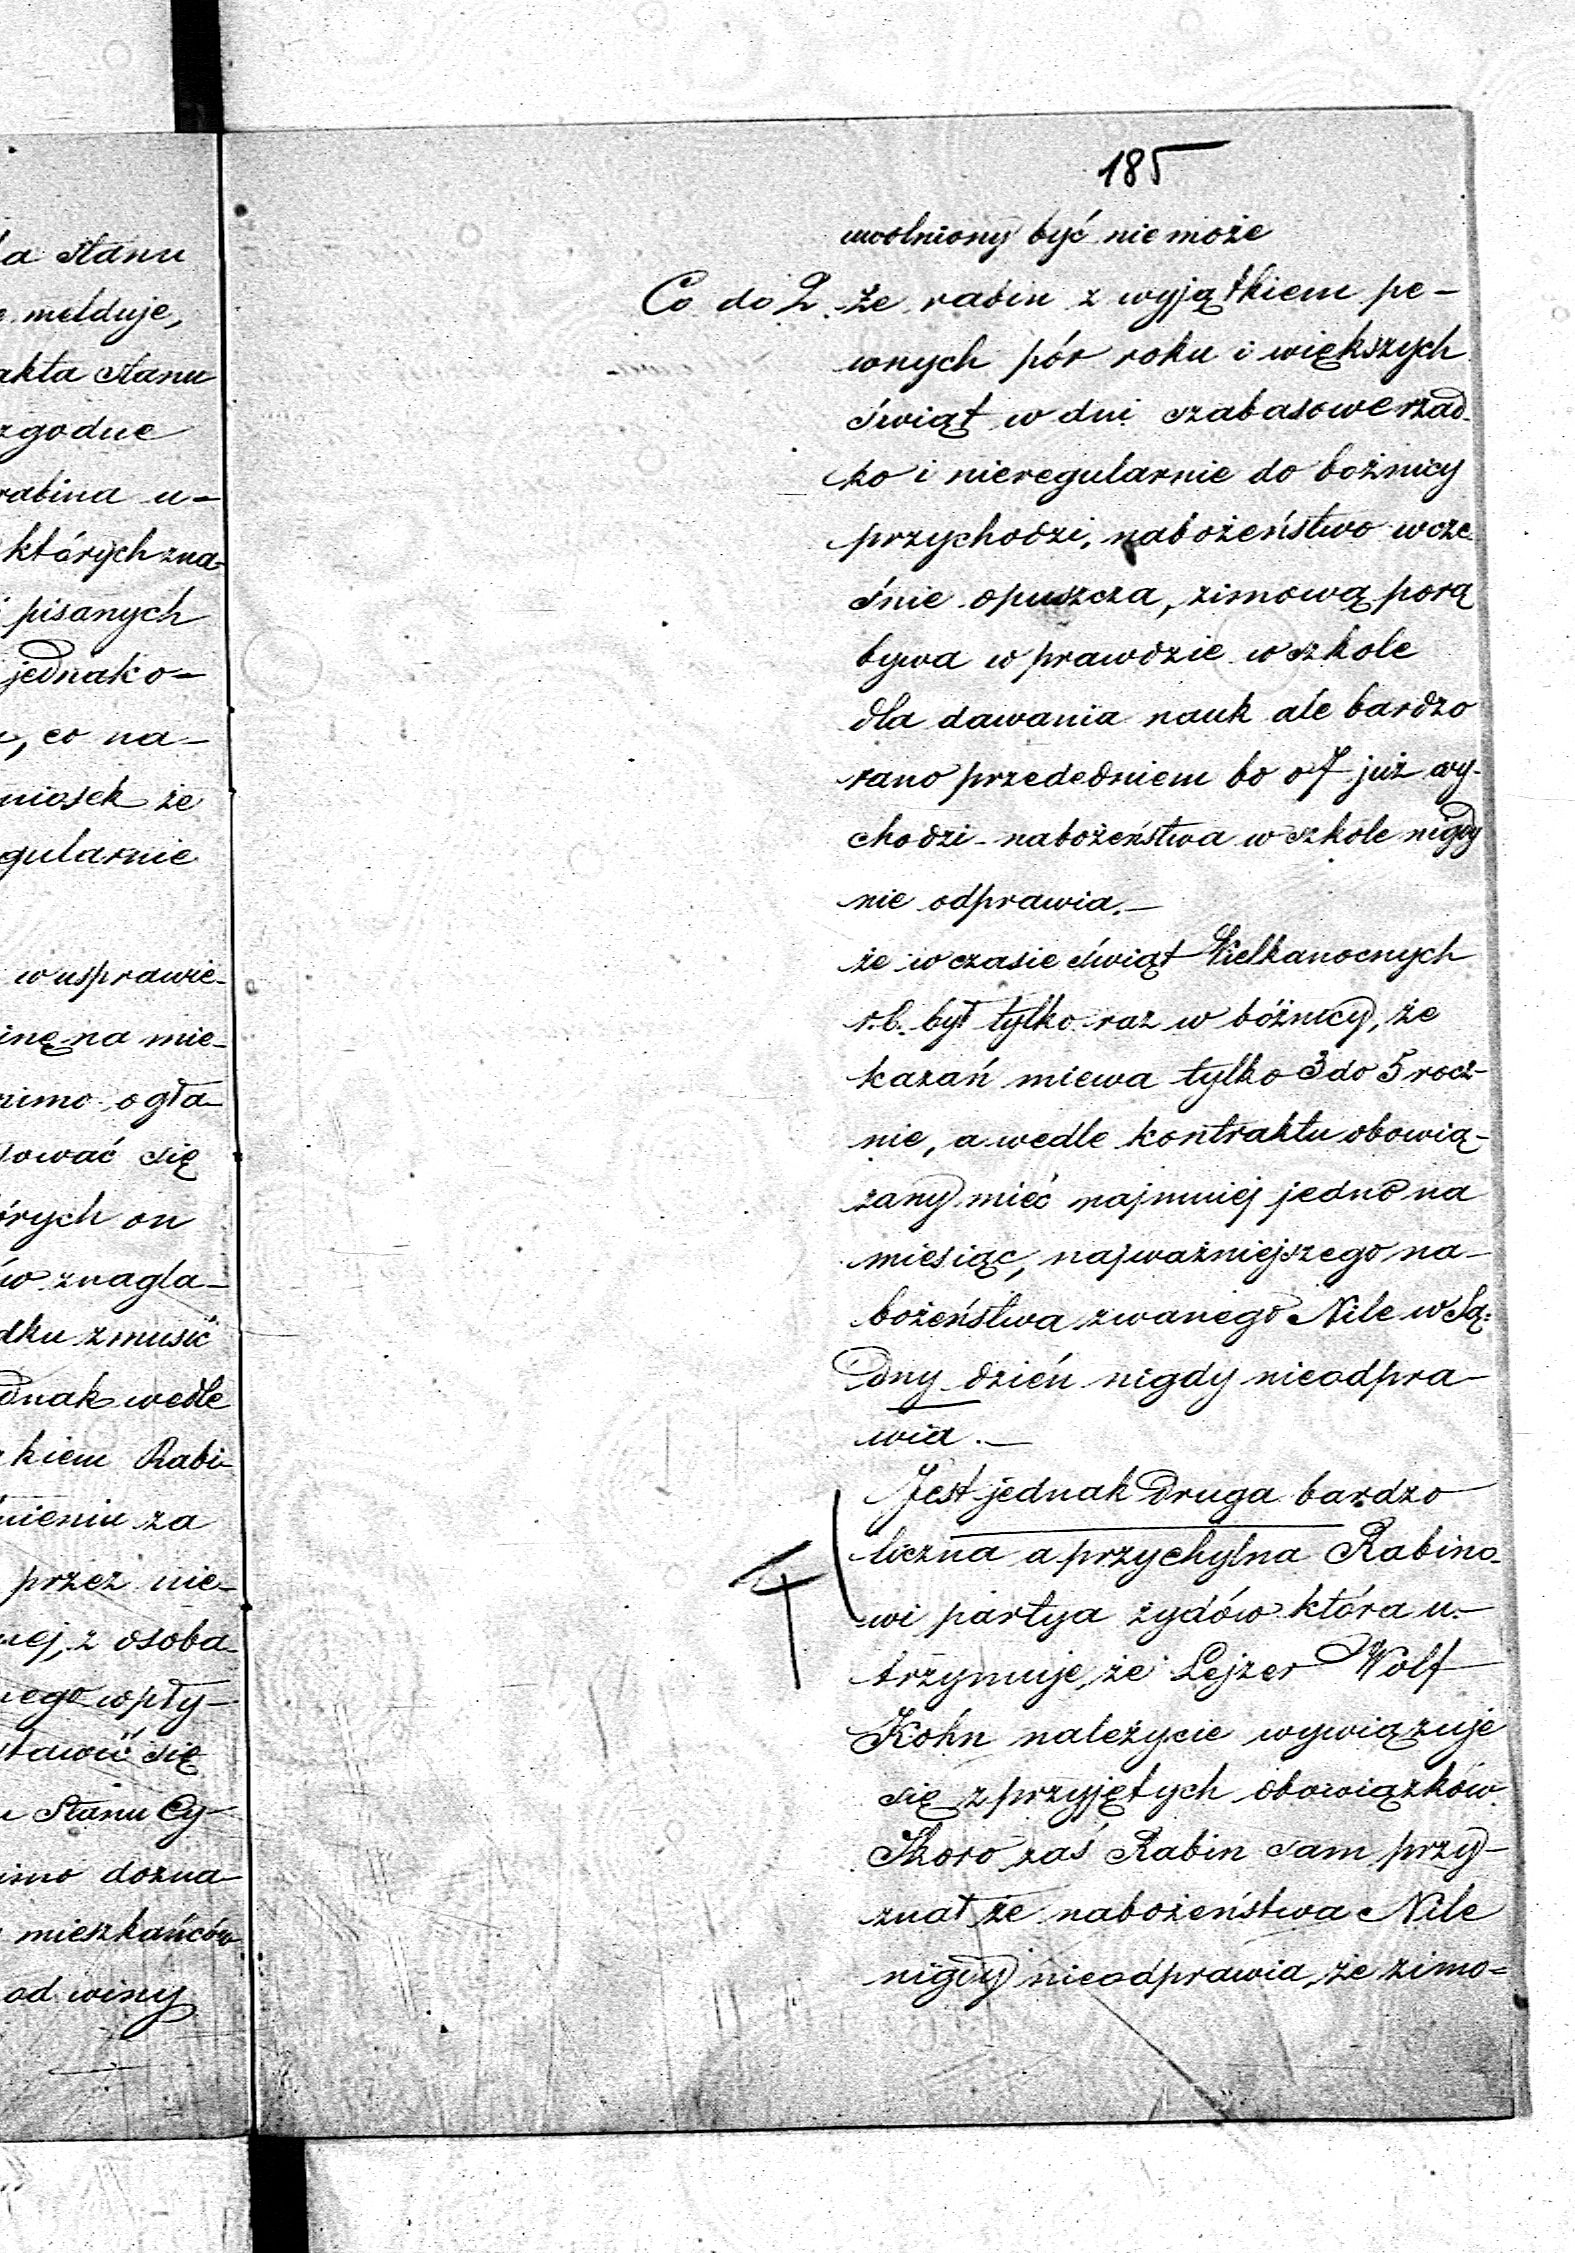 la stanu
melduje,
akta stanu
zgodne
rabina u-
których zna-
pisanych
jednako-
, co na-
niosek że
gularnie
w usprawie-
inę na mie-
mimo ogła-
sować się
órych on
ów znagla-
dku zmusić
dnak wedle
kiem Rabi-
nieniu za
przez nie-
nej, z osoba-
nego wpły-
stawić się
Stanu Cy-
imo dozna-
mieszkańców
od winy
185
uwolniony być nie może
Co do 2. że rabin z wyjątkiem pe-
wnych pór roku i większych
świąt w dni szabasowe rzad-
ko i nieregularnie do bożnicy
przychodzi, nabożeństwo wcze-
śnie opuszcza, zimową porą
bywa w prawdzie w szkole
dla dawania nauk ale bardzo
rano przededniem bo o 7 już wy-
chodzi - nabożeństwa w szkole nigdy
nie odprawia. -
że w czasie świąt Wielkanocnych
r.b. był tylko raz w bóżnicy, że
kazań miewa tylko 3 do 5 rocz-
nie, a wedle kontraktu obowią-
zany mieć najmniej jedno na
miesiąc, najważniejszego na-
bożeństwa zwanego Nile w Są-
dny dzień nigdy nieodpra-
wia. -
Jest jednak druga bardzo
liczna a przychylna Rabino-
wi partya żydów która u-
trzymuje, że Lejzer Wolf
Kohn należycie wywiązuje
się z przyjętych obowiązków.
Skoro zaś Rabin sam przy-
znał że nabożeństwa Nile
nigdy nieodprawia, że zimo-